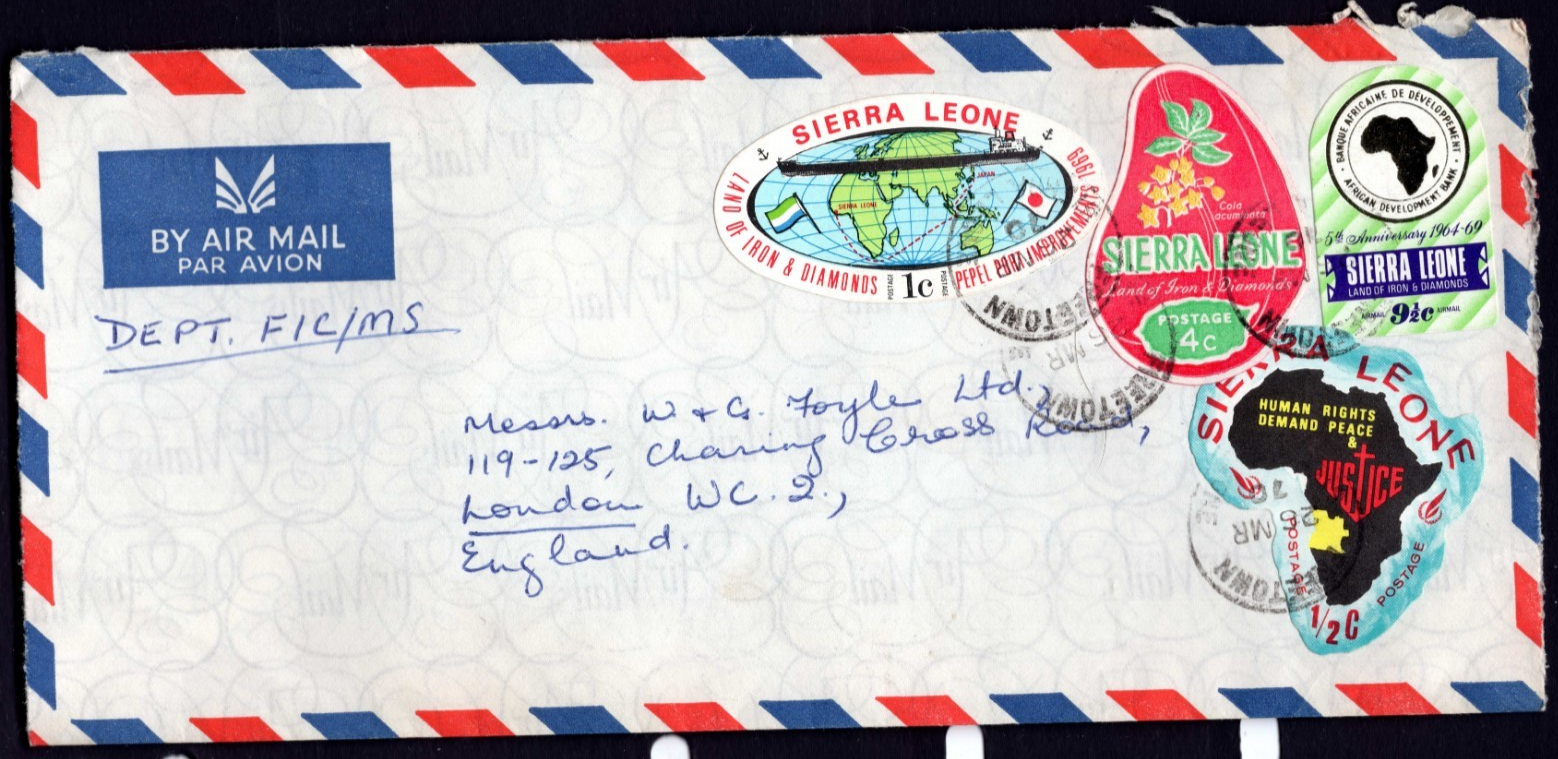 BY AIR MAIL
PAR AVION
DEPT. F/C/MS
Messrs. W & G. Foyle Ltd.,
119-125, Charing Cross Road,
London WC.2.,
England.
SIERRA LEONE
LAND OF IRON & DIAMONDS
PEPEL PORT IMPROVEMENTS 1969
SIERRA LEONE
JAPAN
POSTAGE
1c
POSTAGE
Cola
acuminata
SIERRA LEONE
Land of Iron & Diamonds
POSTAGE
4c
BANQUE AFRICAINE DE DÉVELOPPEMENT
AFRICAN DEVELOPMENT BANK
5th Anniversary 1964-69
SIERRA LEONE
LAND OF IRON & DIAMONDS
AIRMAIL 9½c AIRMAIL
SIERRA LEONE
HUMAN RIGHTS
DEMAND PEACE
&
JUSTICE
POSTAGE
POSTAGE
1/2 C
FREETOWN
MR
FREETOWN
20 MR
70